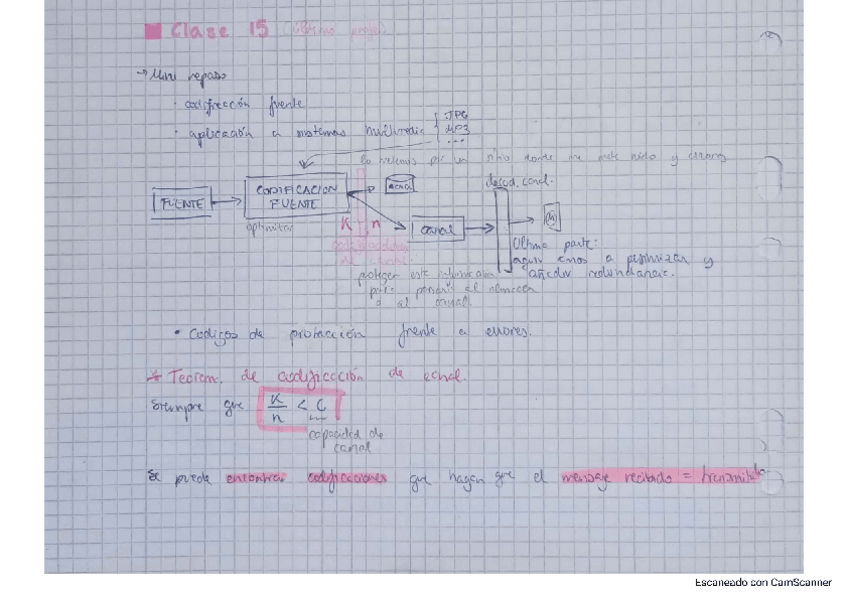 Clase 15 (último profe)
→ Mini repaso
· codificación fuente
· aplicación a sistemas multimedia { JPG
MP3
...
lo metemos por un sitio donde se mete ruido y errores
FUENTE → CODIFICACION
FUENTE
decod. canal.
optimizar
K n
canal
Ultima parte:
aquí vamos a
y
añadir redundancia.
proteger esta información
para ponerla al almacén
o al canal.
• Codigos de protección frente a errores.
* Teorem. de codificación de canal.
Siempre que K/n < C
capacidad de
canal
Se puede encontrar codificaciones que hagan que el mensaje recibido = transmitido
Escaneado con CamScanner